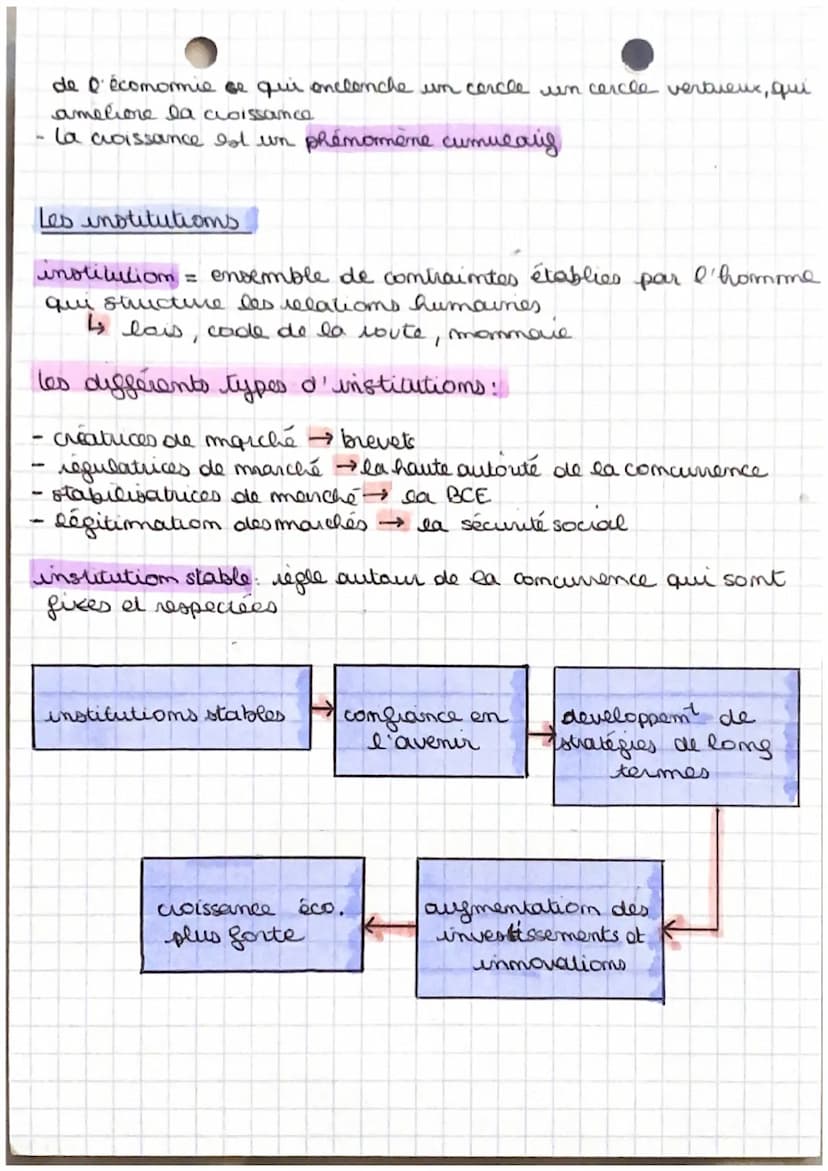 de l'économie ce qui enclenche un cercle un cercle vertueux, qui
améliore la croissance
- La croissance est un phénomène cumulatif
Les institutions
institution = ensemble de contraintes établies par l'homme
qui structure les relations humaines
↳ lois, code de la route, monnaie
les différents types d'institutions :
- créatrices de marché → brevets
- régulatrices de marché → la haute autorité de la concurrence
- stabilisatrices de marché → la BCE
- légitimation des marchés → la sécurité social
institution stable : règle autour de la concurrence qui sont
fixes et respectées
institutions stables →
confiance en
l'avenir →
developpemt de
stratégies de long
termes
augmentation des
investissements et
innovations
croissance éco.
plus forte